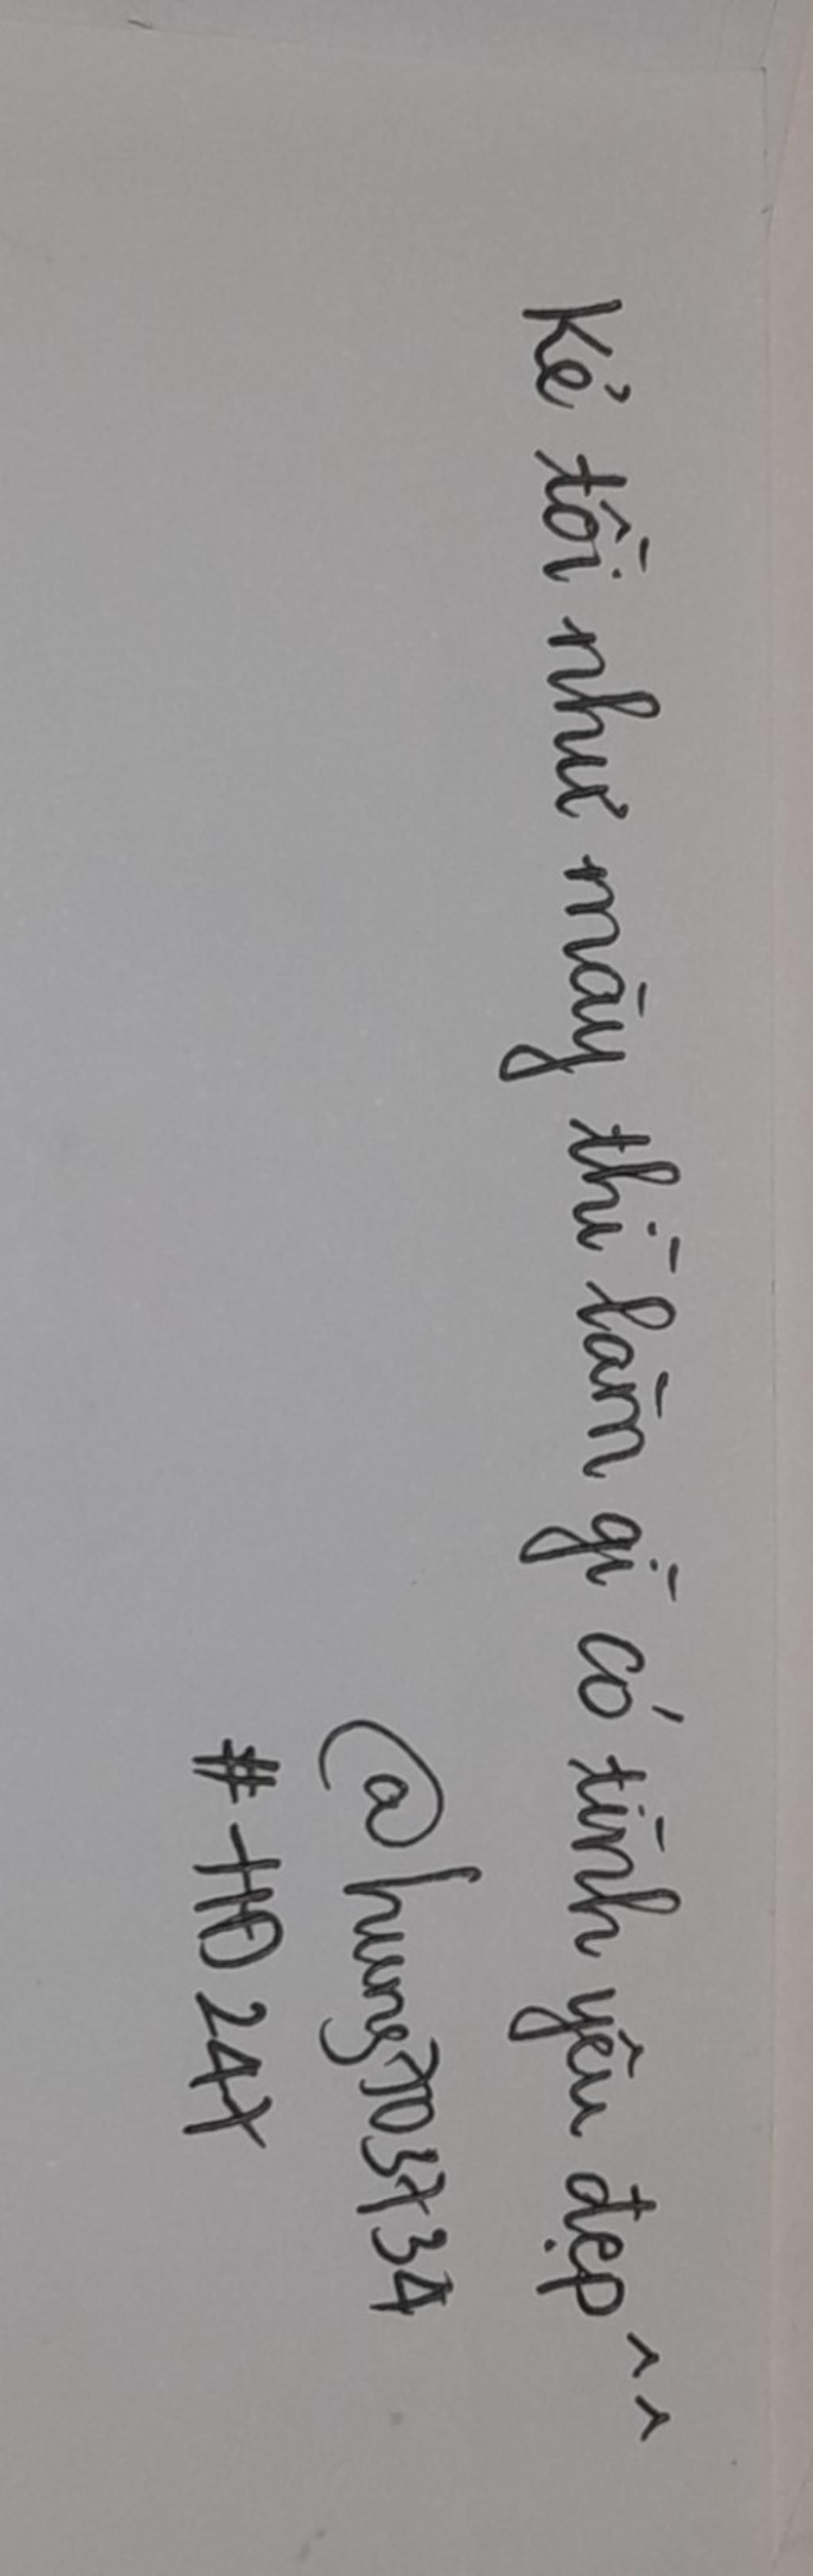 Kẻ tồi như mày thì làm gì có tình yêu đẹp ^^
@hung703734
#HĐ247